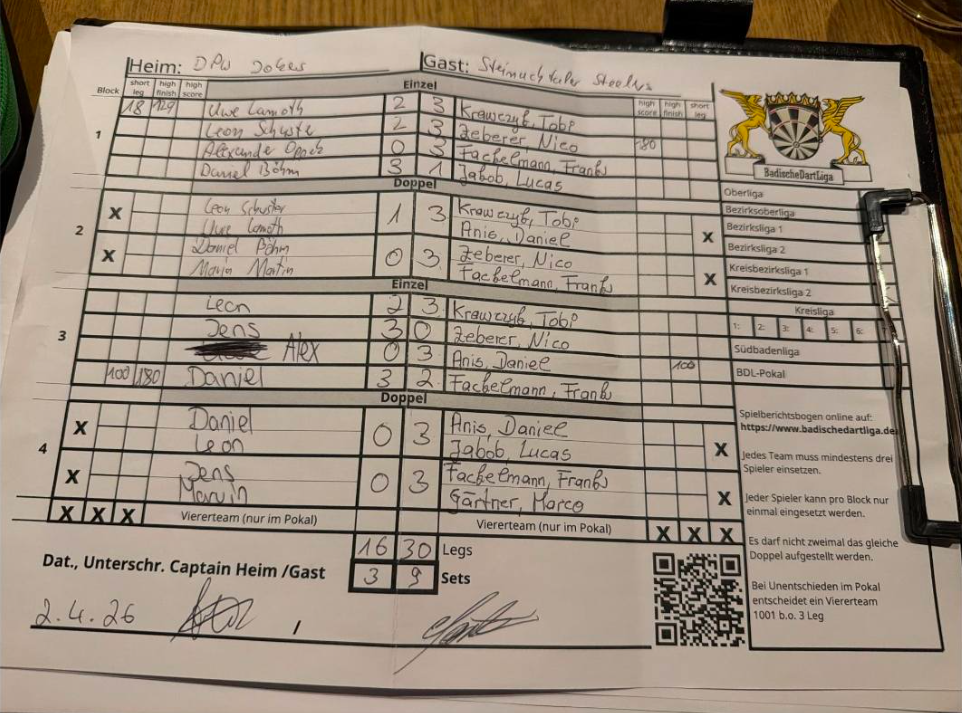 Heim: DPW Jokers Gast: Steinachtaler Steelers
Block short leg high finish high score Einzel high score high finish short leg
1
18 129 Uwe Lamoth 2 3 Krawczyk, Tobi
Leon Schuster 2 3 Zeberer, Nico 180
Alexander 0 3 Fackelmann, Frank
Daniel Böhm 3 1 Jakob, Lucas
Doppel
2
X Leon Schuster 1 3 Krawczyk, Tobi
Uwe Lamoth Anis, Daniel X
X Daniel Böhm 0 3 Zeberer, Nico
Marvin Martin Fackelmann, Frank X
Einzel
3
Leon 2 3 Krawczyk, Tobi
Jens 3 0 Zeberer, Nico
Alex 0 3 Anis, Daniel 100
100 180 Daniel 3 2 Fackelmann, Frank
Doppel
4
X Daniel 0 3 Anis, Daniel
Leon Jakob, Lucas X
X Jens 0 3 Fackelmann, Frank
Marvin Gärtner, Marco X
X X X Viererteam (nur im Pokal) Viererteam (nur im Pokal) X X X
16 30 Legs
Dat., Unterschr. Captain Heim /Gast 3 9 Sets
2.4.26 /
BadischeDartLiga
Oberliga
Bezirksoberliga
Bezirksliga 1
Bezirksliga 2
Kreisbezirksliga 1
Kreisbezirksliga 2
Kreisliga
1: 2: 3: 4: 5: 6:
Südbadenliga
BDL-Pokal
Spielberichtsbogen online auf:
https://www.badischedartliga.de
Jedes Team muss mindestens drei
Spieler einsetzen.
Jeder Spieler kann pro Block nur
einmal eingesetzt werden.
Es darf nicht zweimal das gleiche
Doppel aufgestellt werden.
Bei Unentschieden im Pokal
entscheidet ein Viererteam
1001 b.o. 3 Leg